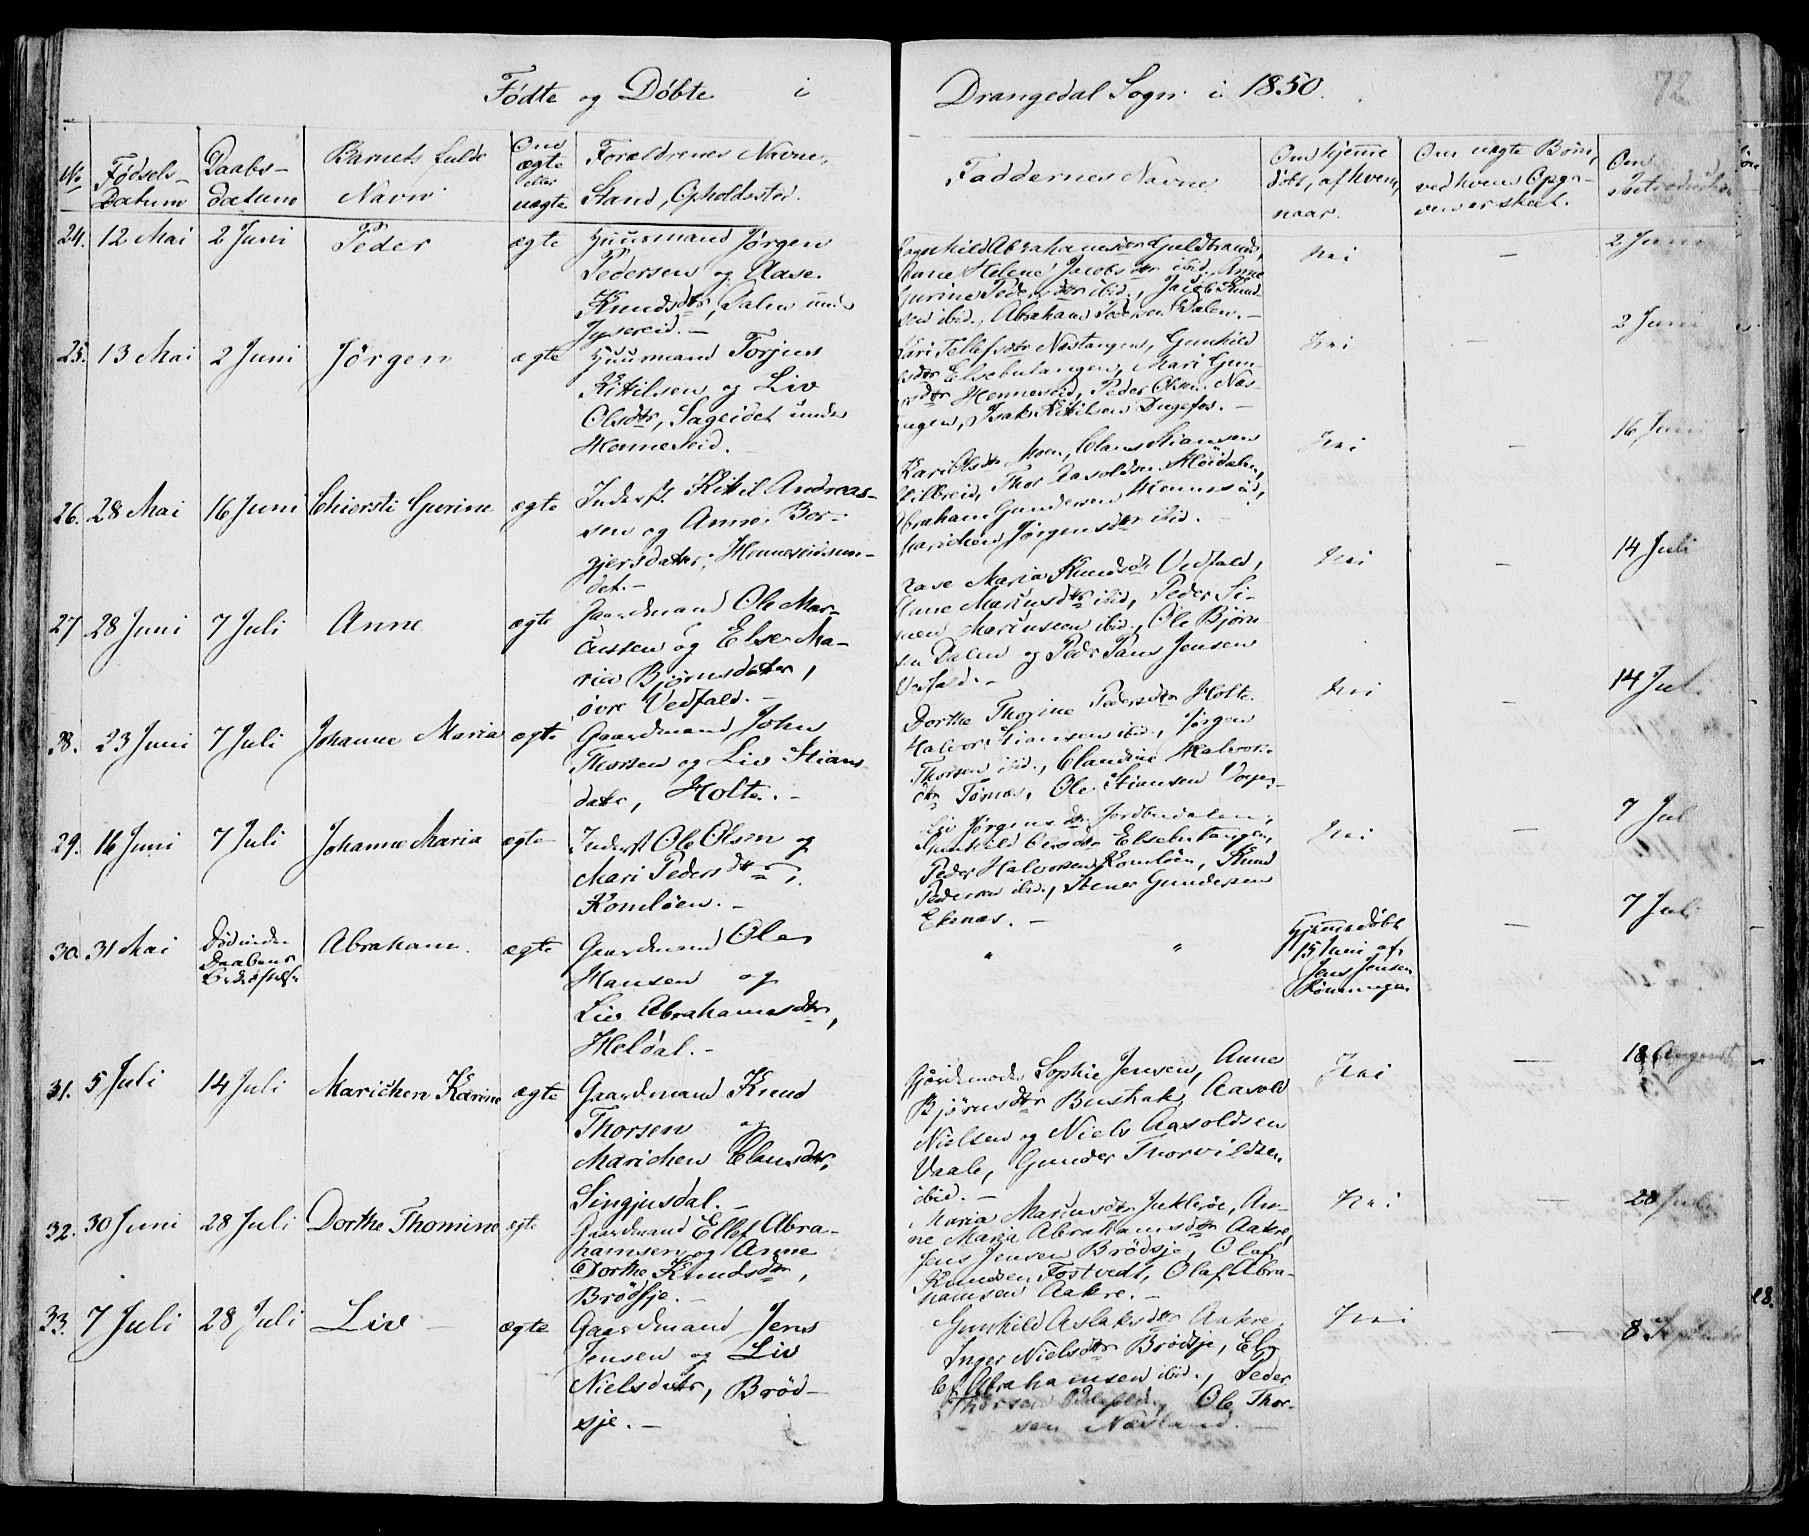 Födte og Döbte i Drangedal Sogn i 1850.
72
No
Fødsels-
Datum
Daabs-
datum
Barnets fulde
Navn
Om
ægte
eller
uægte
Forældrenes Navne,
Stand, Opholdssted.
Faddernes Navne
Om hjemme
döbt, af hvem,
naar.
Om uægte Børn,
ved hvem Opgi-
velsen er skeet.
Om
Introduktion
24. 12 Mai 2 Juni Peder ægte
Huusmand Jørgen
Pedersen og Aase
Knudsdtr, Dalen under
Jysereid.-
Abrahamsdtr
Anne Helene Jacobsdtr ibid., Anne
Gurine Pedersdtr ibid., Jacob Knud-
sen ibid., Abraham Pedersen Dalen.-
Nei
-
2 Juni
25. 13 Mai 2 Juni Jörgen ægte
Huusmand Torjus
Kittilsen og Liv
Olsdtr, Sageidet under
Henneseid.
Kari Tellefsdtr Næstangen, Gunhild
Elsebutangen, Mari Gun-
Henneseid, Peder Olsen Næs-
tangen, Isak Kittilsen Dugefos.-
Nei
-
2 Juni
26. 28 Mai 16 Juni Chiersti Gurine ægte
Inderst Kittil Andreas-
sen og Anne Bor-
gjersdatter, Henneseidsun-
det.-
Kari Olsdtr Moen, Claus Stiansen
Thor Aasoldsen
Abraham Gundersen Henneseid,
Marichen Jörgensdtr ibid.-
Nei
-
16 Juni
27 28 Juni 7 Juli Anne ægte
Gaardmand Ole Mar-
cussen og Else Ma-
ria Bjørnsdatter,
övre Vedfald.-
Aase Maria Knudsdtr Vedfald,
Anne Mariusdtr ibid, Peder Si-
men ibid., Ole Bjørn
sen Dalen og Jensen
Vedfald.-
Nei
-
14 Juli
28. 23 Juni 7 Juli Johanne Maria ægte
Gaardmand John
Thorsen og Liv Stians
datr, Holte.-
Dorthe Thorine Pedersdtr Holte.
Halvor Stiansen ibid., Jörgen
Thorsen ibid., Claudine Halvors-
dtr Tørnes, Ole Stiansen
Nei
-
14 Jul
29. 16 Juni 7 Juli Johanne Maria ægte
Inderst Ole Olsen og
Mari Pedersdtr,
Komlöen.-
Jørgensdtr Jordbudalen,
Gunhild Elsebutangen,
Peder Halvorsen Komlöen, Knud
Pedersen ibid., Stener Gundersen
Ekenæs.-
Nei
-
7 Jul
30. 31 Mai
Död inden
Daabens
Bekræftelse
Abraham. ægte
Gaardmand Ole
Hansen og
Liv Abrahamsdtr,
Heldal.-
" "
Hjemmedöbt
15 Juni af
Jens Jensen
-
7 Juli
31. 5 Juli 14 Juli Marichen Karine ægte
Gaardmand Knud
Thorsen og
Marichen Clausdtr,
Singjusdal.-
Gjordemoder Sophie Jensen, Anne
Bjørnsdtr Bustrak, Aasold
Nielsen og Niels Aasoldsen
Vaale, Gunder Thorvildsen
ibid.-
Nei
-
18 August
32. 30 Juni 28 Juli Dorthe Thomine ægte
Gaardmand Ellef Abra-
hamsen og Anne
Dorthe Knudsdtr,
Brödsje.-
Maria Mariusdtr An-
ne Maria Abrahamsdtr Aakre,
Jens Jensen Brödsje, Olaf
Knudsen Tostvedt, Olaf Abra-
hamsen Aakre.-
Nei
-
28 Juli
33. 7 Juli 28 Juli Liv ægte
Gaardmand Jens
Jensen og Liv
Nielsdatr, Bröd-
sje.-
Gunhild Aslaksdtr Aakre,
Inger Nielsdtr Brödsje, El-
lef Abrahamsen ibid., Peder
Thorsen Ole Thor-
sen Næsland.-
Nei
-
8 September